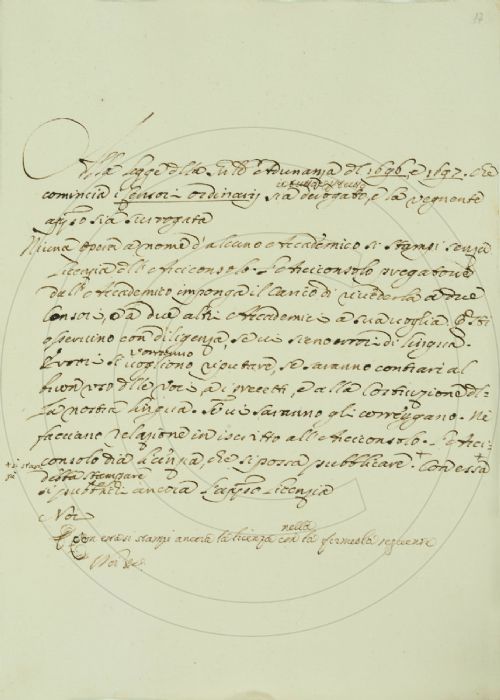 17
Alla legge della Sud.ta Adunanza del 1696 e 1697. che
comincia i Censori ordinarij sia derogato, e la seguente
appresso sia surrogata
Niuna opera a nome d'alcuno Accademico si stampi senza
licenza dell'Arciconsolo. L'Arciconsolo pregatone
dall'Accademico imponga il carico di rivederla a due
Censori, e a due altri Accademici a sua voglia. Questi
osservino con diligenza, se vi sieno errori di lingua.
Errori si vogliono reputare, se saranno contrari al
vorranno
buon uso delle voci, a i precetti, e alla Costituzione del-
la nostra lingua. Se vi saranno gli correggano. Ne
facciano relazione in iscritto all'Arciconsolo. L'Arci-
consolo dia licenza, che si possa pubblicare. Con essa
debba stampare
si pubblichi ancora l'appresso licenza
Noi
Con essa si stampi ancora la licenza con la formola seguente
nella
Noi &c.